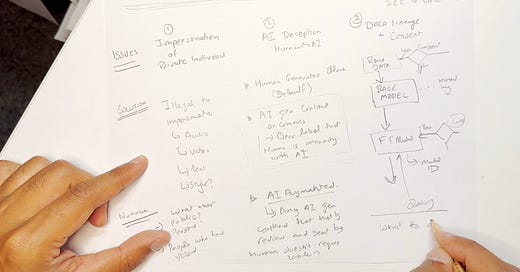 SEC
①
②
③
Issues
Impersonation
of
Private Individual
AI Deception
Human → AI
Data lineage
+ Consent
Solution
Illegal to
impersonate
↳ Audio
↳ Video
↳ Text
↳ Style?
Human Generated
(Default)
AI gen Content
or comms
→ Clear label that
Human is interacting
with AI
Raw
DATA
Yes
Consent
BASE
MODEL
FT Model
Yes
Model
ID
Query
Nuance
→ What about
public?
Person
→ People who have
passed
AI Augmented.
↳ Any AI gen
content that is
review and sent by
human doesn't require
label?
What to